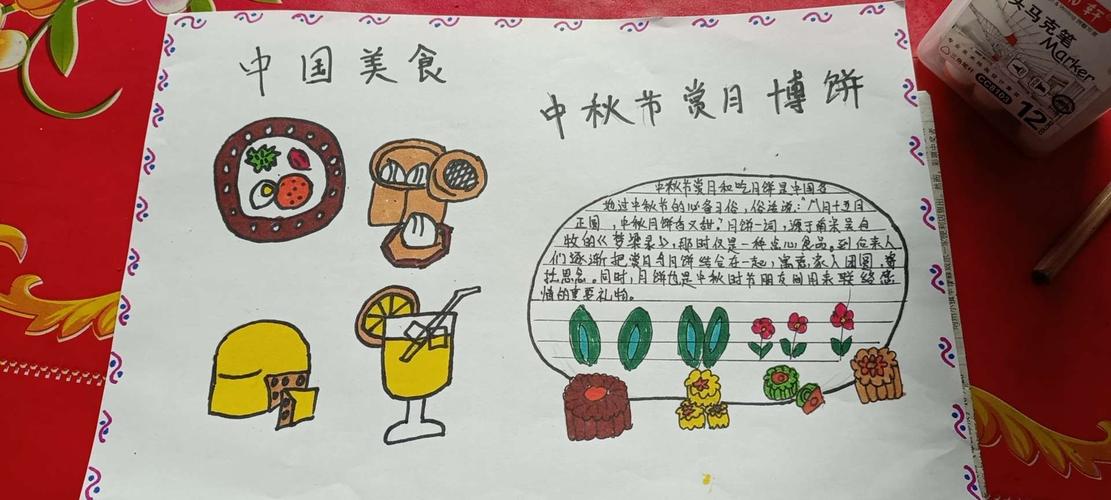 中国美食
中秋节赏月博饼
中秋节赏月和吃月饼是中国各
地过中秋节的必备习俗，俗话说："八月十五月
正圆，中秋月饼香又甜。"月饼一词，源于南宋吴自
牧的《梦梁录》，那时仅是一种点心食品。到后来人
们逐渐把赏月与月饼结合在一起，寓意家人团圆，寄
托思念。同时，月饼也是中秋时节朋友间用来联络感
情的重要礼物。
马克笔
Marker
12